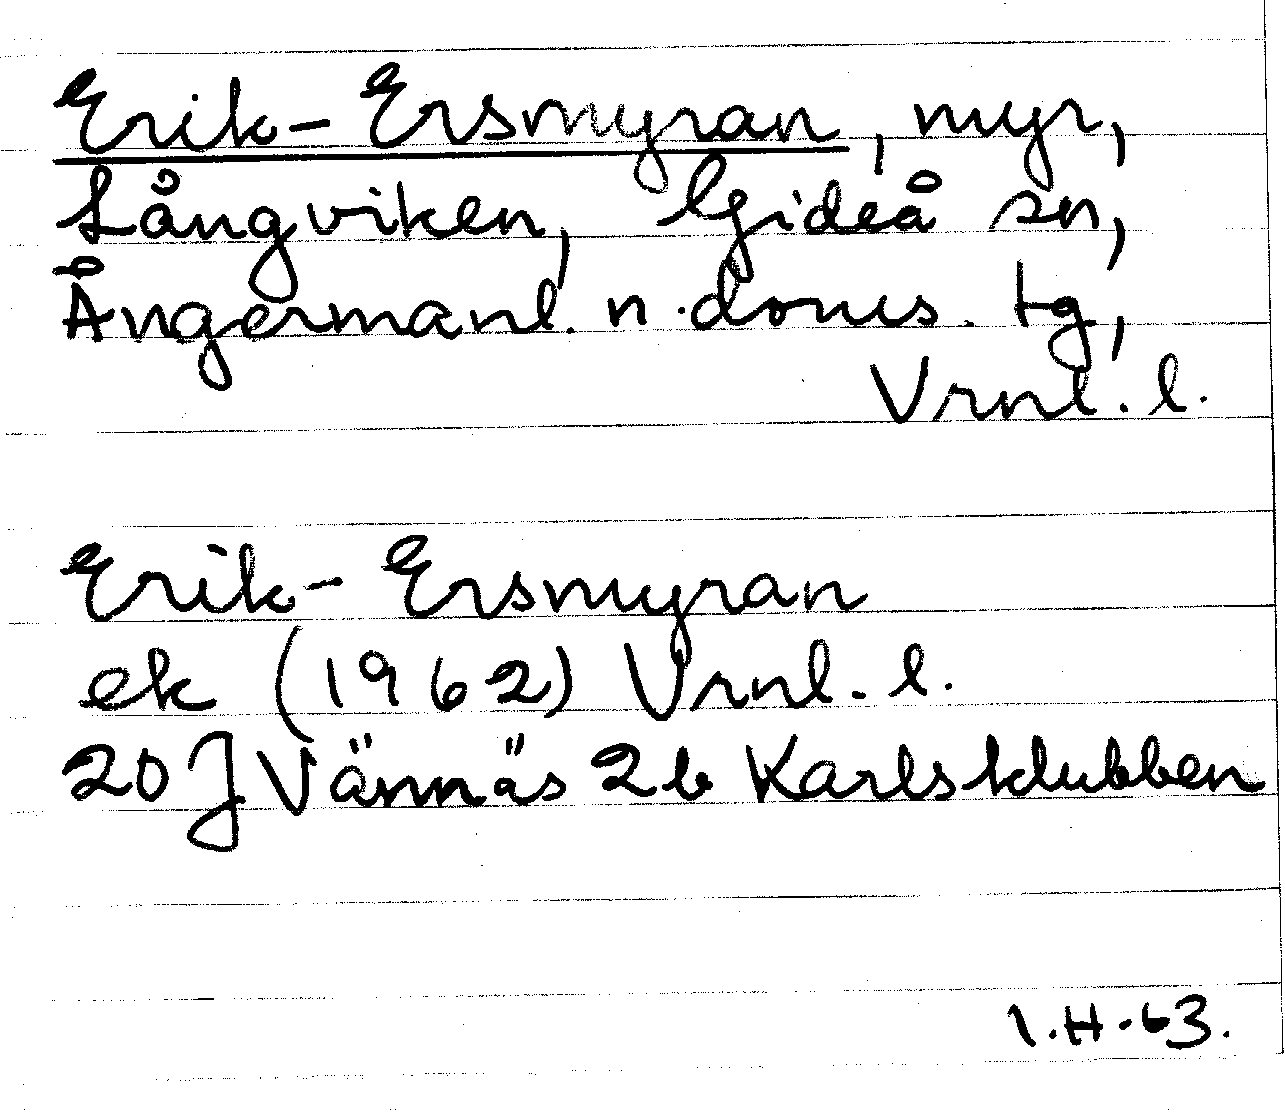 Erik-Ersmyran, myr,
Långviken, Gideå sn,
Ångermanl. n. doms. tg,
Vrnl. l.
Erik-Ersmyran
ek (1962) Vrnl. l.
20 J Vännäs 2b Karlsklubben
I.H.63.